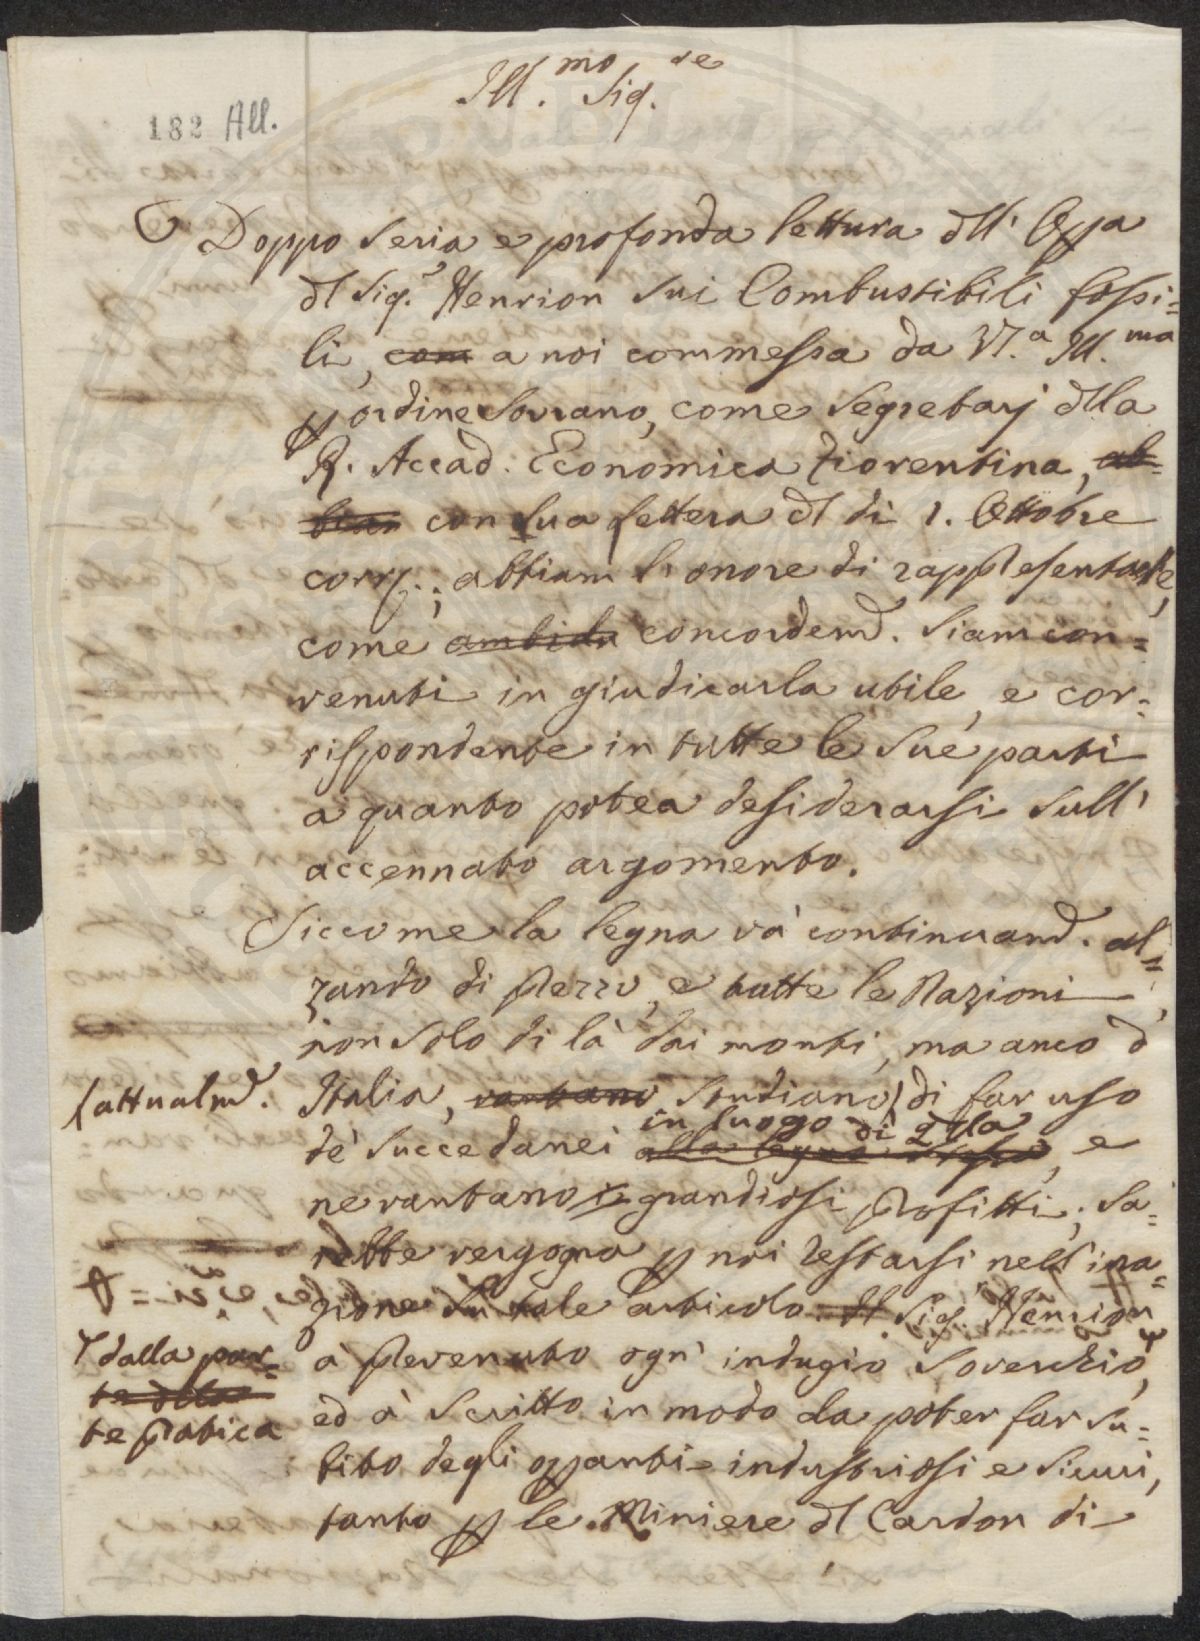 Ill.mo Sig.re
182 All.
Doppo seria e profonda lettura dll' Opa
dl Sig.r Henrion sui Combustibili fossi=
li, com a noi commessa da VS.a Ill.ma
p ordine Sovrano, come Segretarj dlla
R. Accad. Economica Fiorentina, ab=
biam con sua lettera dl di 1. Ottobre
corr.; abbiam l'onore di rappresentarle,
come ambidu concordemd. siam con=
venuti in giudicarla utile, e cor=
rispondente in tutte le sue parti
a quanto potea desiderarsi sull'
accennato argomento.
Siccome la legna và continuamd. al=
zando di prezzo, e tutte le Nazioni
non solo di là dai monti, ma anco d
Italia, vantano studiano di far uso
(attualmd.
in luogo di qlla
de' succedanei alla legna stessa, e
ne vantano grandiosi profitti; sa=
rebbe vergogna p noi restarsi nell'ina=
zione su tale articolo. Il Sig.r Henrion
à prevenuto ogni indugio soverchio,
dalla par=
te dlla
te pratica
ed à scritto in modo da poter far su=
bito degli opanti industriosi e sicuri,
tanto p le Miniere dl Cardon di